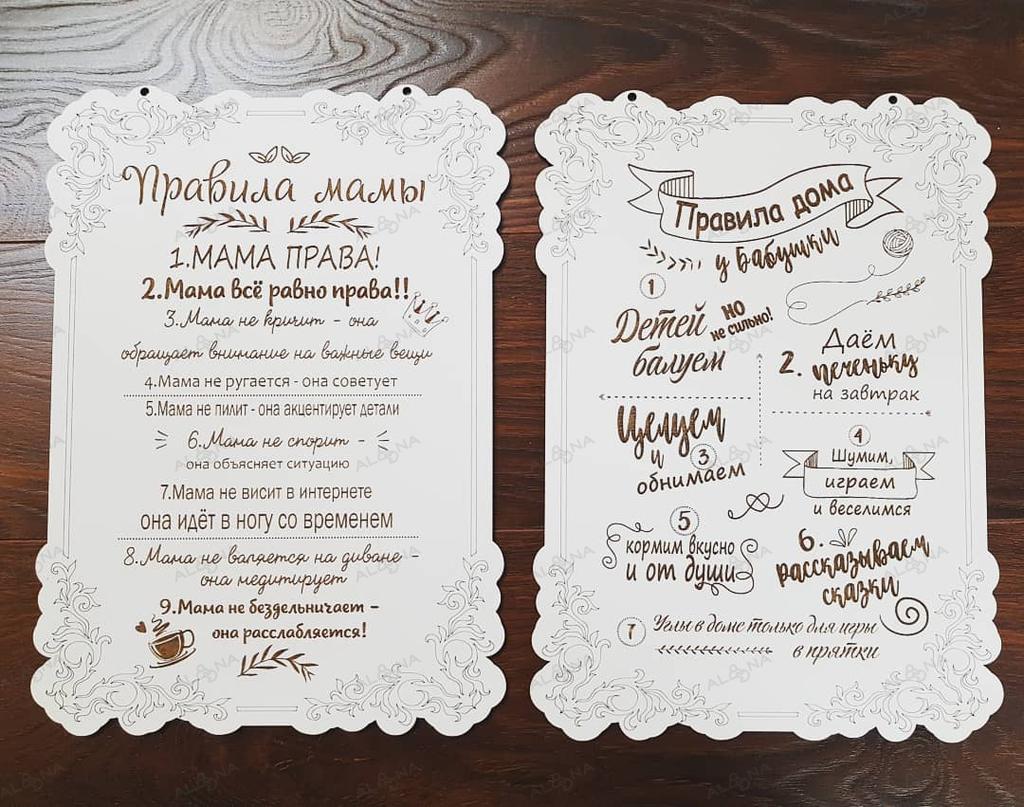 Правила мамы
1.МАМА ПРАВА!
2.Мама всё равно права!!
3.Мама не кричит - она
обращает внимание на важные вещи
4.Мама не ругается - она советует
5.Мама не пилит - она акцентирует детали
6.Мама не спорит -
она объясняет ситуацию
7.Мама не висит в интернете
она идёт в ногу со временем
8.Мама не валяется на диване -
она медитирует
9.Мама не бездельничает -
она расслабляется!
Правила дома
у Бабушки
1
Детей но не сильно!
балуем
2. Даём
печеньку
на завтрак
Целуем
и 3
обнимаем
4
Шумим,
играем
и веселимся
5
кормим вкусно
и от души
6.
рассказываем
сказки
7 Углы в доме только для игры
в прятки
AL8ONA